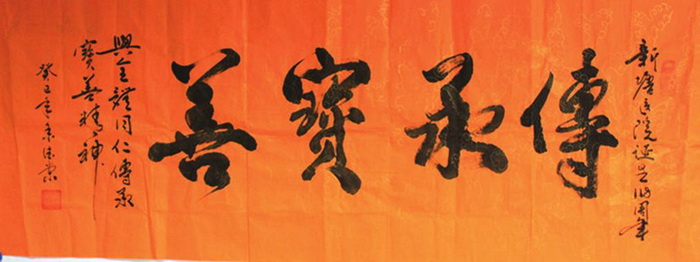 新塘医院誕周年
傳承寶善
與全體同仁傳承
寶善精神
癸巳